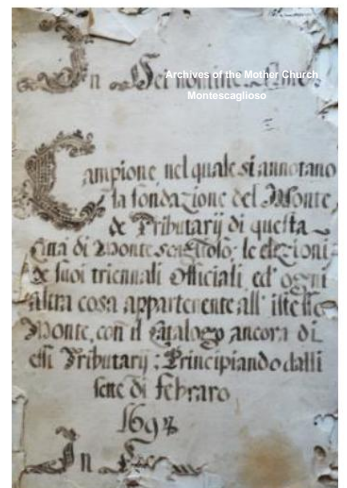 In Dei nomine Amen
Archives of the Mother Church
Montescaglioso
Campione nel quale si annotano
la fondazione del Monte
de Tributarij di questa
Città di Monte Scaglioso; le elezioni
de suoi triennali Officiali ed' ogni
altra cosa appartenente all' istesso
Monte, con il Catalogo ancora di
essi Tributarij; Principiando dalli
sette di febraro
In